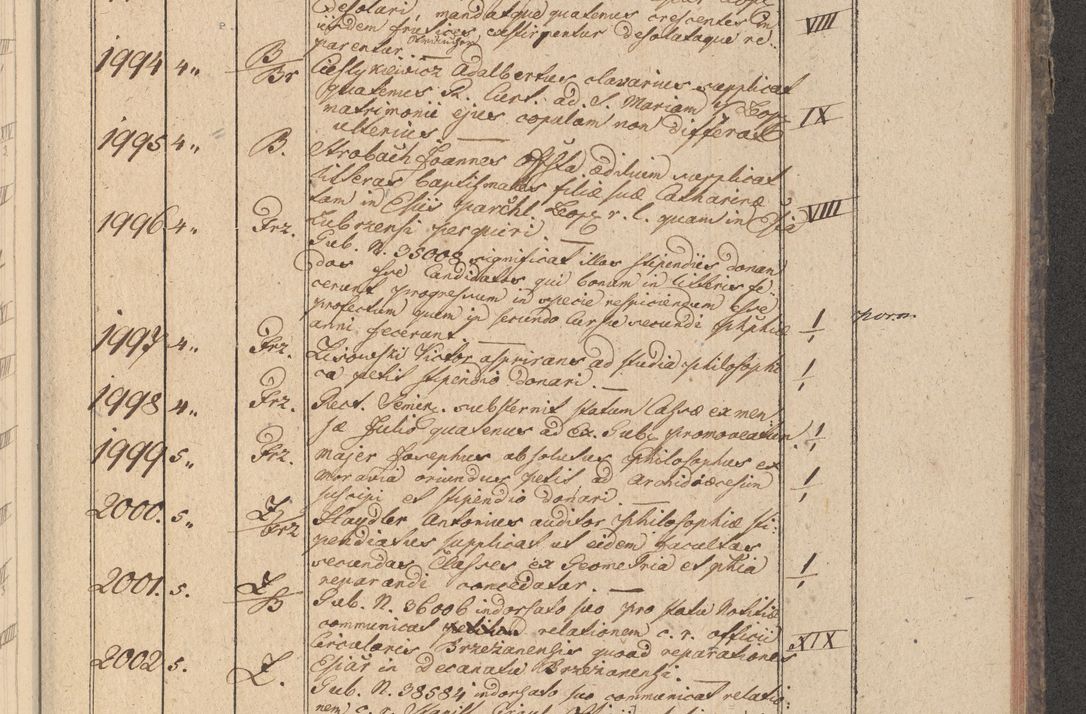 desolari, mandatque quatenus crescentes in
iisdem frutices exstirpentur desolataque re-
parentur VIII
1994 4„ B/Br Cieslykiewicz Adalbertus clavarius supplicat
quatenus R. Curt. ad S. Mariam
matrimonii ejus copulam non differat IX
ulterius
1995 4„ B. Strobach Joannes Offsta ædituum supplicat
litteras baptismales filiæ suæ Catharinæ
tam in Ecsiis parchl. Leop. r. l. quam in VIII
1996 4„ Frz. Zubrzensi perquiri.
Gub. N. 35008 significat illas stipendiis donan
das esse Candidatos qui bonum in litteris fe-
cerunt progressum in specie respiciendum esse
profectum quem in secundo cursu secundi phphiæ
anni fecerunt. 1/1 norm
1997 4„ Frz. Lisowski Victor aspirans ad studia philosophi
ca petit stipendio donari. 1/1
1998 4„ Frz. Rect. Semin. substernit statum Cassæ ex men-
sæ Julio quatenus ad Ex. Gub. promoveatur. 1/1
1999 5„ Frz. Majer Josephus absolutus philosophus ex
Moravia oriundus petit ad Archidiœcesim 1/1
suscipi et stipendio donari.
2000. 5„ Z/Frz Haydler Antonius auditor philosophiæ sti-
pendiatus supplicat ut eidem facultas
secundas Classes ex Geometria et phia 1/1
reparandi concedatur.
2001. 5. Z/B Gub. N. 36006 indorsato suo pro statu notitiæ
communicat relationem c. r. officii
Circulares Brzezanensis quoad reparationes XIX
2002 5. Z. Ecsiar in Decanatu Brzezanensi.
Gub. N. 38584 indorsato suo communicat relatio-
nem c. r.